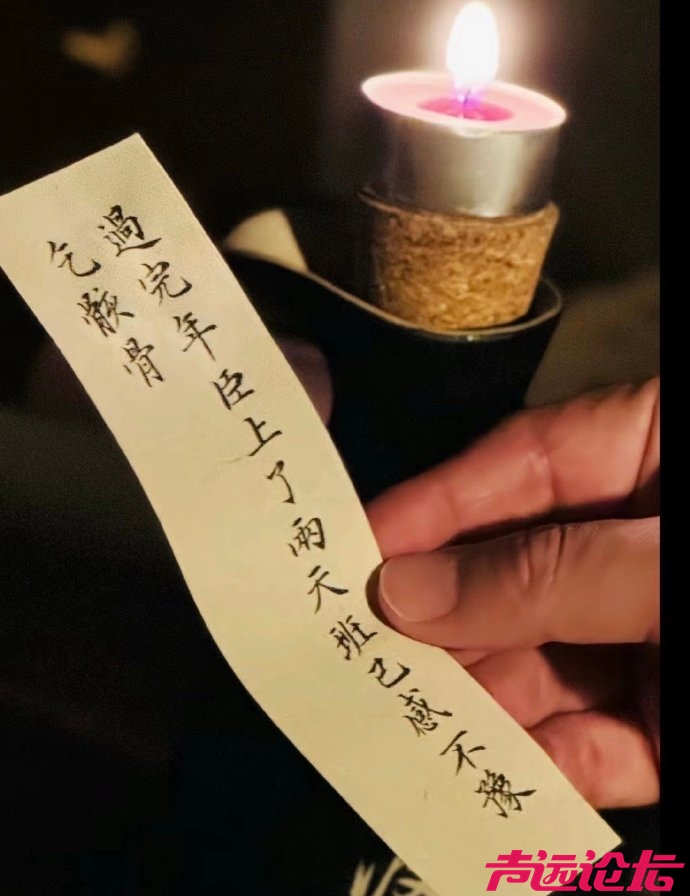 過完年臣上了兩天班已感不豫
乞骸骨
声远论坛